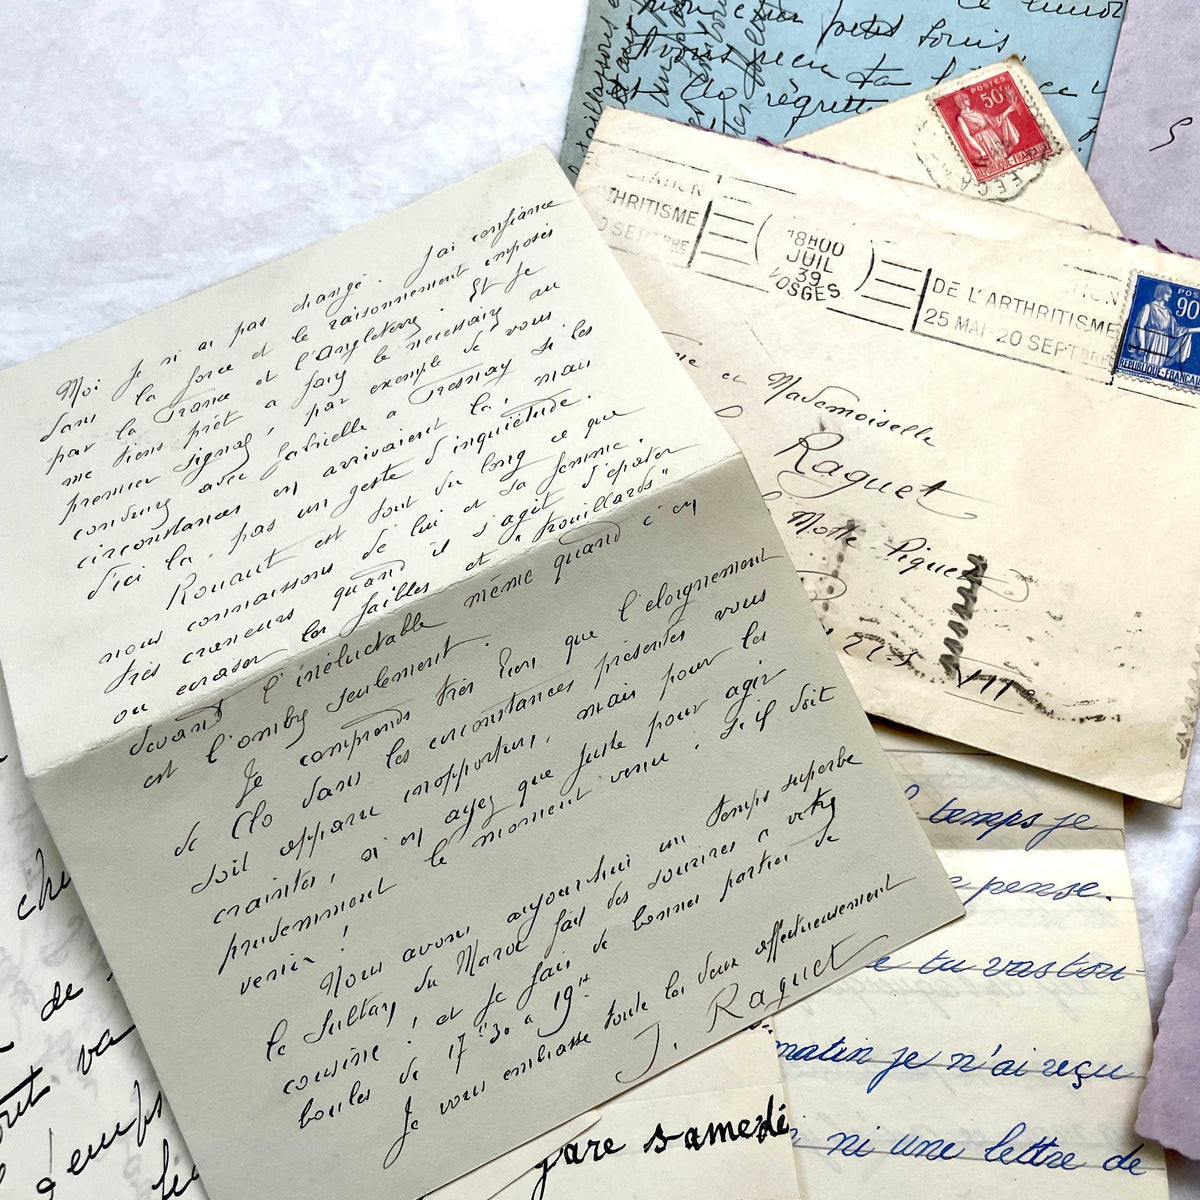 Moi je n'ai pas changé. J'ai confiance
dans la force et le raisonnement imposés
par la France et l'Angleterre. Et je
me tiens prêt à faire le nécessaire au
premier signal, par exemple de vous
conduire avec Gabrielle à Tresnay si les
circonstances en arrivaient là, mais
d'ici là, pas un geste d'inquiétude.
Rouaut est tout du long ce que
nous connaissons de lui et sa femme.
très craneurs quand il s'agit d'épater
ou ecraser les faibles et "trouillards"
devant l'inéluctable même quand c'en
est l'ombre seulement.
Je comprends très bien que l'eloignement
de Clo dans les circonstances présentes vous
soit apparu inopportun, mais pour les
craintes, n'en ayez que juste pour agir
prudemment le moment venu. S'il doit
venir !
Nous avons aujourd'hui un temps superbe
le Sultan du Maroc fait des sourires à votre
cousine ! et je fais de bonnes parties de
boules de 17h30 à 19h
Je vous embrasse toute les deux affectueusement
J. Raguet
mon cher petit Louis
reçu ta
Clo regrette
POSTES
50c
REPUBLIQUE-FRANÇAISE
THRITISME
SEPTBRE
18H00
JUIL
39
VOSGES
DE L'ARTHRITISME
25 MAI-20 SEPTBRE
90
REPUBLIQUE-FRANÇAISE
et Mademoiselle
Raguet
Motte-Piquet
VII
temps je
pense.
tu vas tou-
matin je n'ai reçu
ni une lettre de
gare samedi
de
va